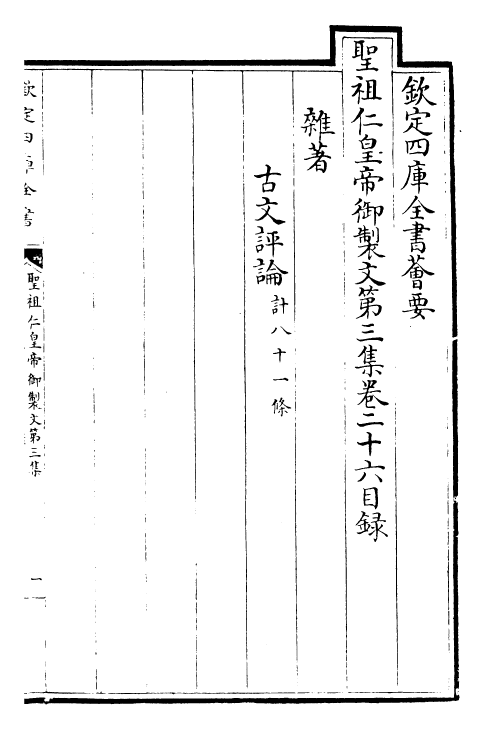 欽定四庫全書薈要
聖祖仁皇帝御製文第三集卷二十六目録
雜著
古文評論計八十一條
欽定四庫全書
聖祖仁皇帝御製文第三集
一